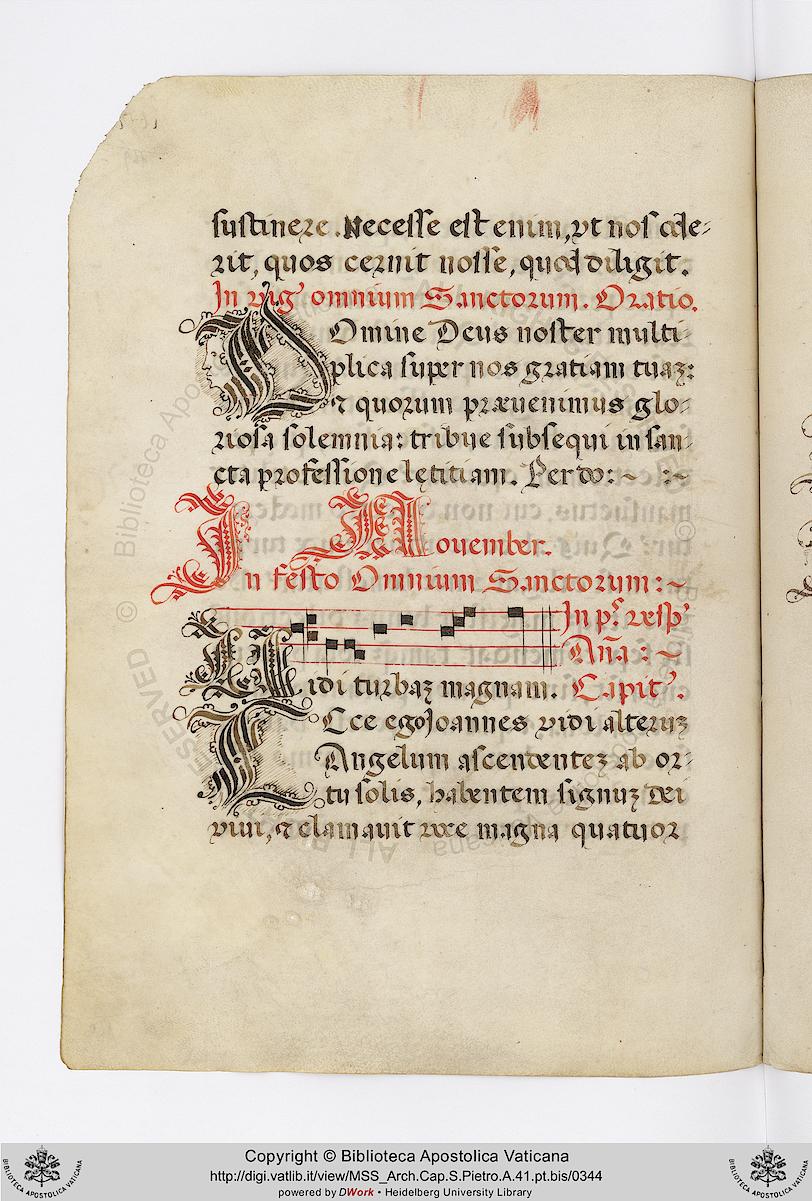 sustinere. Necesse est enim, vt nos cele-
rit, quos cernit nosse, quod diligit.
In vig' omnium Sanctorum. Oratio.
Domine Deus noster multi-
plica super nos gratiam tuaz:
& quorum præuenimus glo-
riosa solemnia: tribue subsequi in san-
cta professione lętitiam. Per do: ~ :~
In November.
In festo Omnium Sanctorum: ~
In p.s vesp'
Aña: ~
Vidi turbaz magnam. Capit'.
Ecce ego Joannes vidi alteruz
Angelum ascendentez ab or-
tu solis, habentem signuz Dei
viui, & clamauit voce magna quatuor
Copyright © Biblioteca Apostolica Vaticana
http://digi.vatlib.it/view/MSS_Arch.Cap.S.Pietro.A.41.pt.bis/0344
powered by DWork • Heidelberg University Library